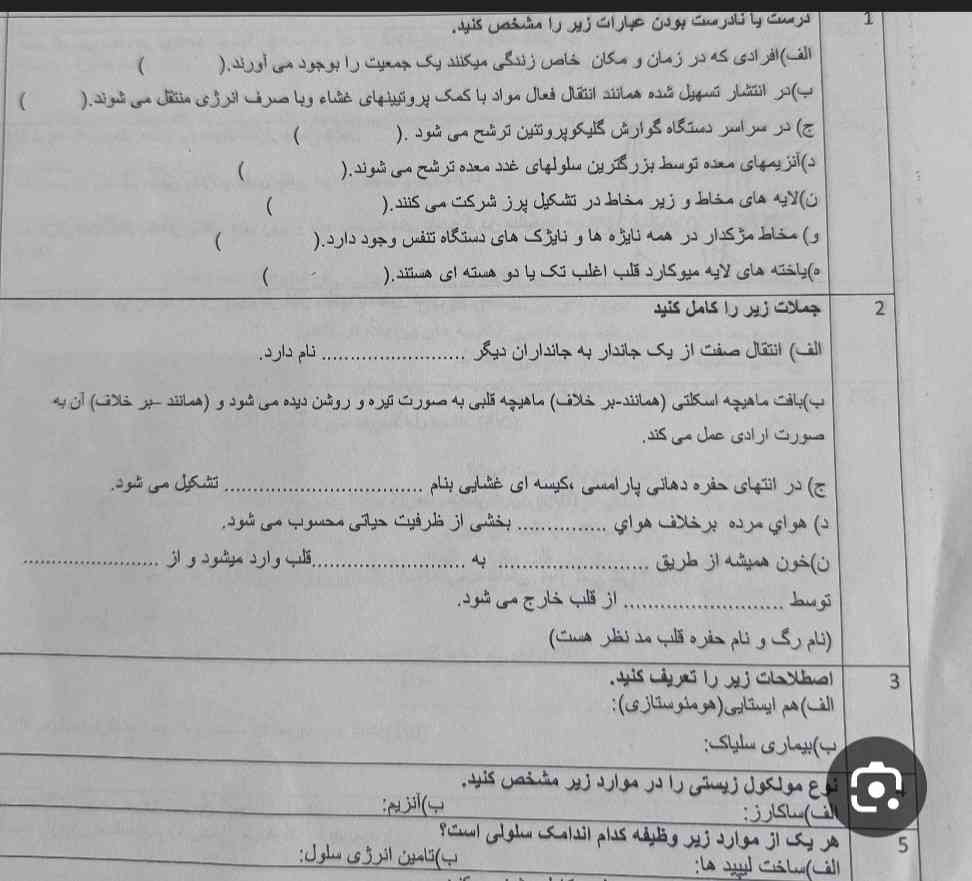 1 درست یا نادرست بودن عبارات زیر را مشخص کنید.
الف)افرادی که در زمان و مکان خاص زندگی میکنند یک جمعیت را بوجود می آورند.( )
ب)در انتشار تسهیل شده همانند انتقال فعال مواد با کمک پروتیینهای غشاء وبا صرف انرژی منتقل می شوند.( )
ج) در سراسر دستگاه گوارش گلیکوپروتئین ترشح می شود .( )
د)آنزیمهای معده توسط بزرگترین سلولهای غدد معده ترشح می شوند.( )
ن)لایه های مخاط و زیر مخاط در تشکیل پرز شرکت می کنند.( )
و) مخاط مژکدار در همه نایژه ها و نایژک های دستگاه تنفس وجود دارد.( )
ه)یاخته های لایه میوکارد قلب اغلب تک یا دو هسته ای هستند.( )
2 جملات زیر را کامل کنید
الف) انتقال صفت از یک جاندار به جانداران دیگر ........................ نام دارد.
ب)بافت ماهیچه اسکلتی (همانند-بر خلاف) ماهیچه قلبی به صورت تیره و روشن دیده می شود و (همانند –بر خلاف) آن به
صورت ارادی عمل می کند.
ج) در انتهای حفره دهانی پارامسی، کیسه ای غشایی بنام ................................. تشکیل می شود.
د) هواي مرده برخلاف هواي ............... بخشی از ظرفیت حیاتی محسوب می شود.
ن)خون همیشه از طریق ......................... به .........................قلب وارد میشود و از ......................
توسط .......................... از قلب خارج می شود.
(نام رگ و نام حفره قلب مد نظر هست)
3 اصطلاحات زیر را تعریف کنید.
الف)هم ایستایی(هومئوستازی):
ب)بیماری سلیاک:
نوع مولکول زیستی را در موارد زیر مشخص کنید.
الف)ساکارز: ب)آنزیم:
5 هر یک از موارد زیر وظیفه کدام اندامک سلولی است؟
الف)ساخت لیپید ها: ب)تامین انرژی سلول: